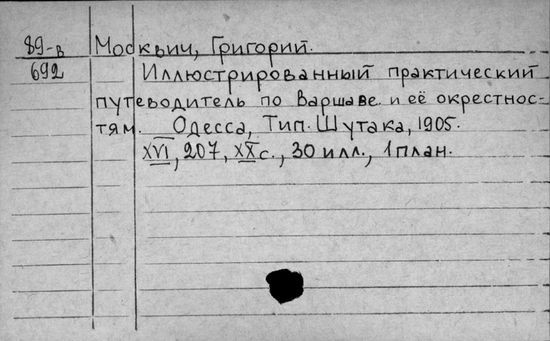 89-в Москвич, Григорий.
692 Иллюстрированный практический
путеводитель по Варшаве и её окрестнос-
тям. Одесса, Тип. Шутака, 1905.
XVI, 207, XX с., 30 илл., 1 план.